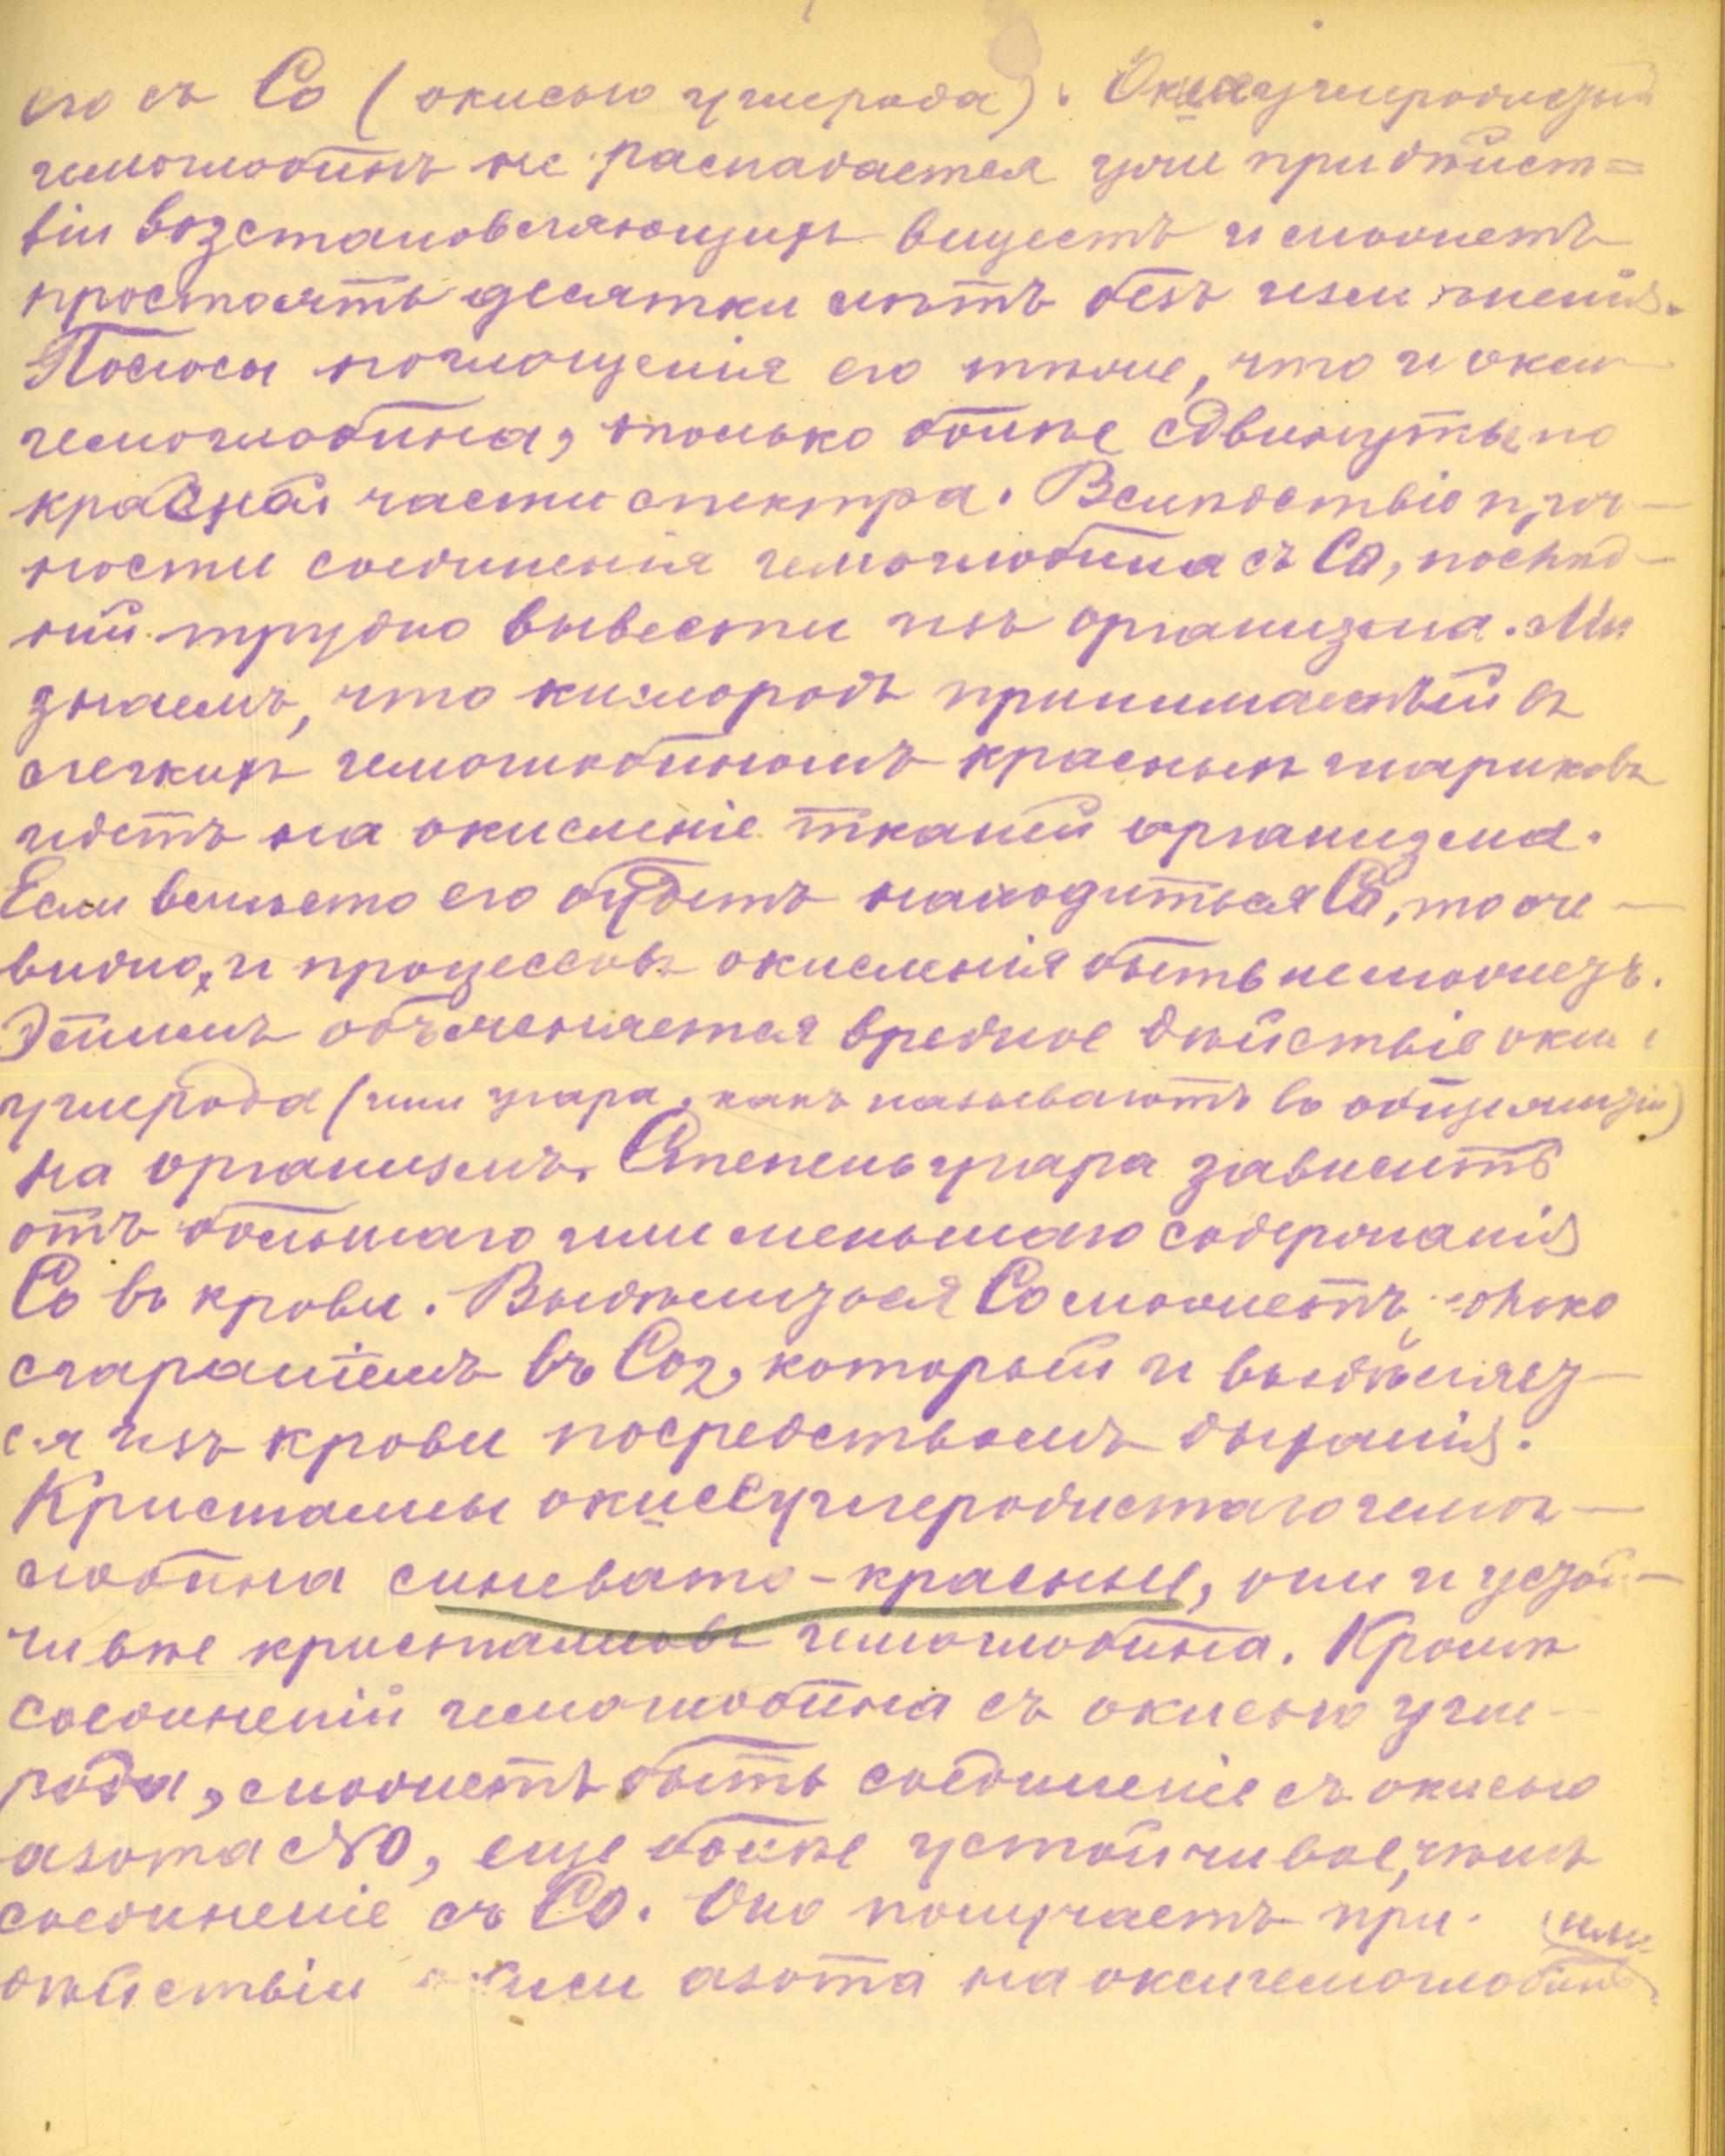 его съ Со (окисью углерода). Окисеуглеродистый
гемоглобинъ не распадается уже при дѣйст=
віи возстановляющихъ веществъ и можетъ
простоять десятки лѣтъ безъ измѣненія.
Полосы поглощенія его тѣже, что и окси
гемоглобина, только болѣе сдвинуты по
красной части спектра. Вслѣдствіе проч-
ности соединенія гемоглобина съ Со, послѣд-
ній трудно вывести изъ организма. Мы
знаемъ, что кислородъ принимаемый въ
легкихъ гемоглобиномъ красныхъ шариковъ
идетъ на окисленіе тканей организма.
Если вмѣсто его будетъ находиться Со, то оче-
видно, и процессовъ окисленія быть не можетъ.
Этимъ объясняется вредное дѣйствіе окиси
углерода (или угара, какъ называютъ въ общежитіи)
на организмъ. Степень угара зависитъ
отъ большаго или меньшаго содержанія
Со въ крови. Выдѣлиться Со можетъ, только
сгораніемъ въ Со2, который и выдѣляет-
ся изъ крови посредствомъ дыханія.
Кристаллы окисеуглеродистаго гемог-
лобина синевато-красные, они и устой-
чивѣе кристалловъ гемоглобина. Кромѣ
соединеній гемоглобина съ окисью угле-
рода, можетъ быть соединеніе съ окисью
азота NO, еще болѣе устойчивое, чѣмъ
соединеніе съ Со. Оно получаетъ при
дѣйствіи окиси азота на оксигемоглобинъ